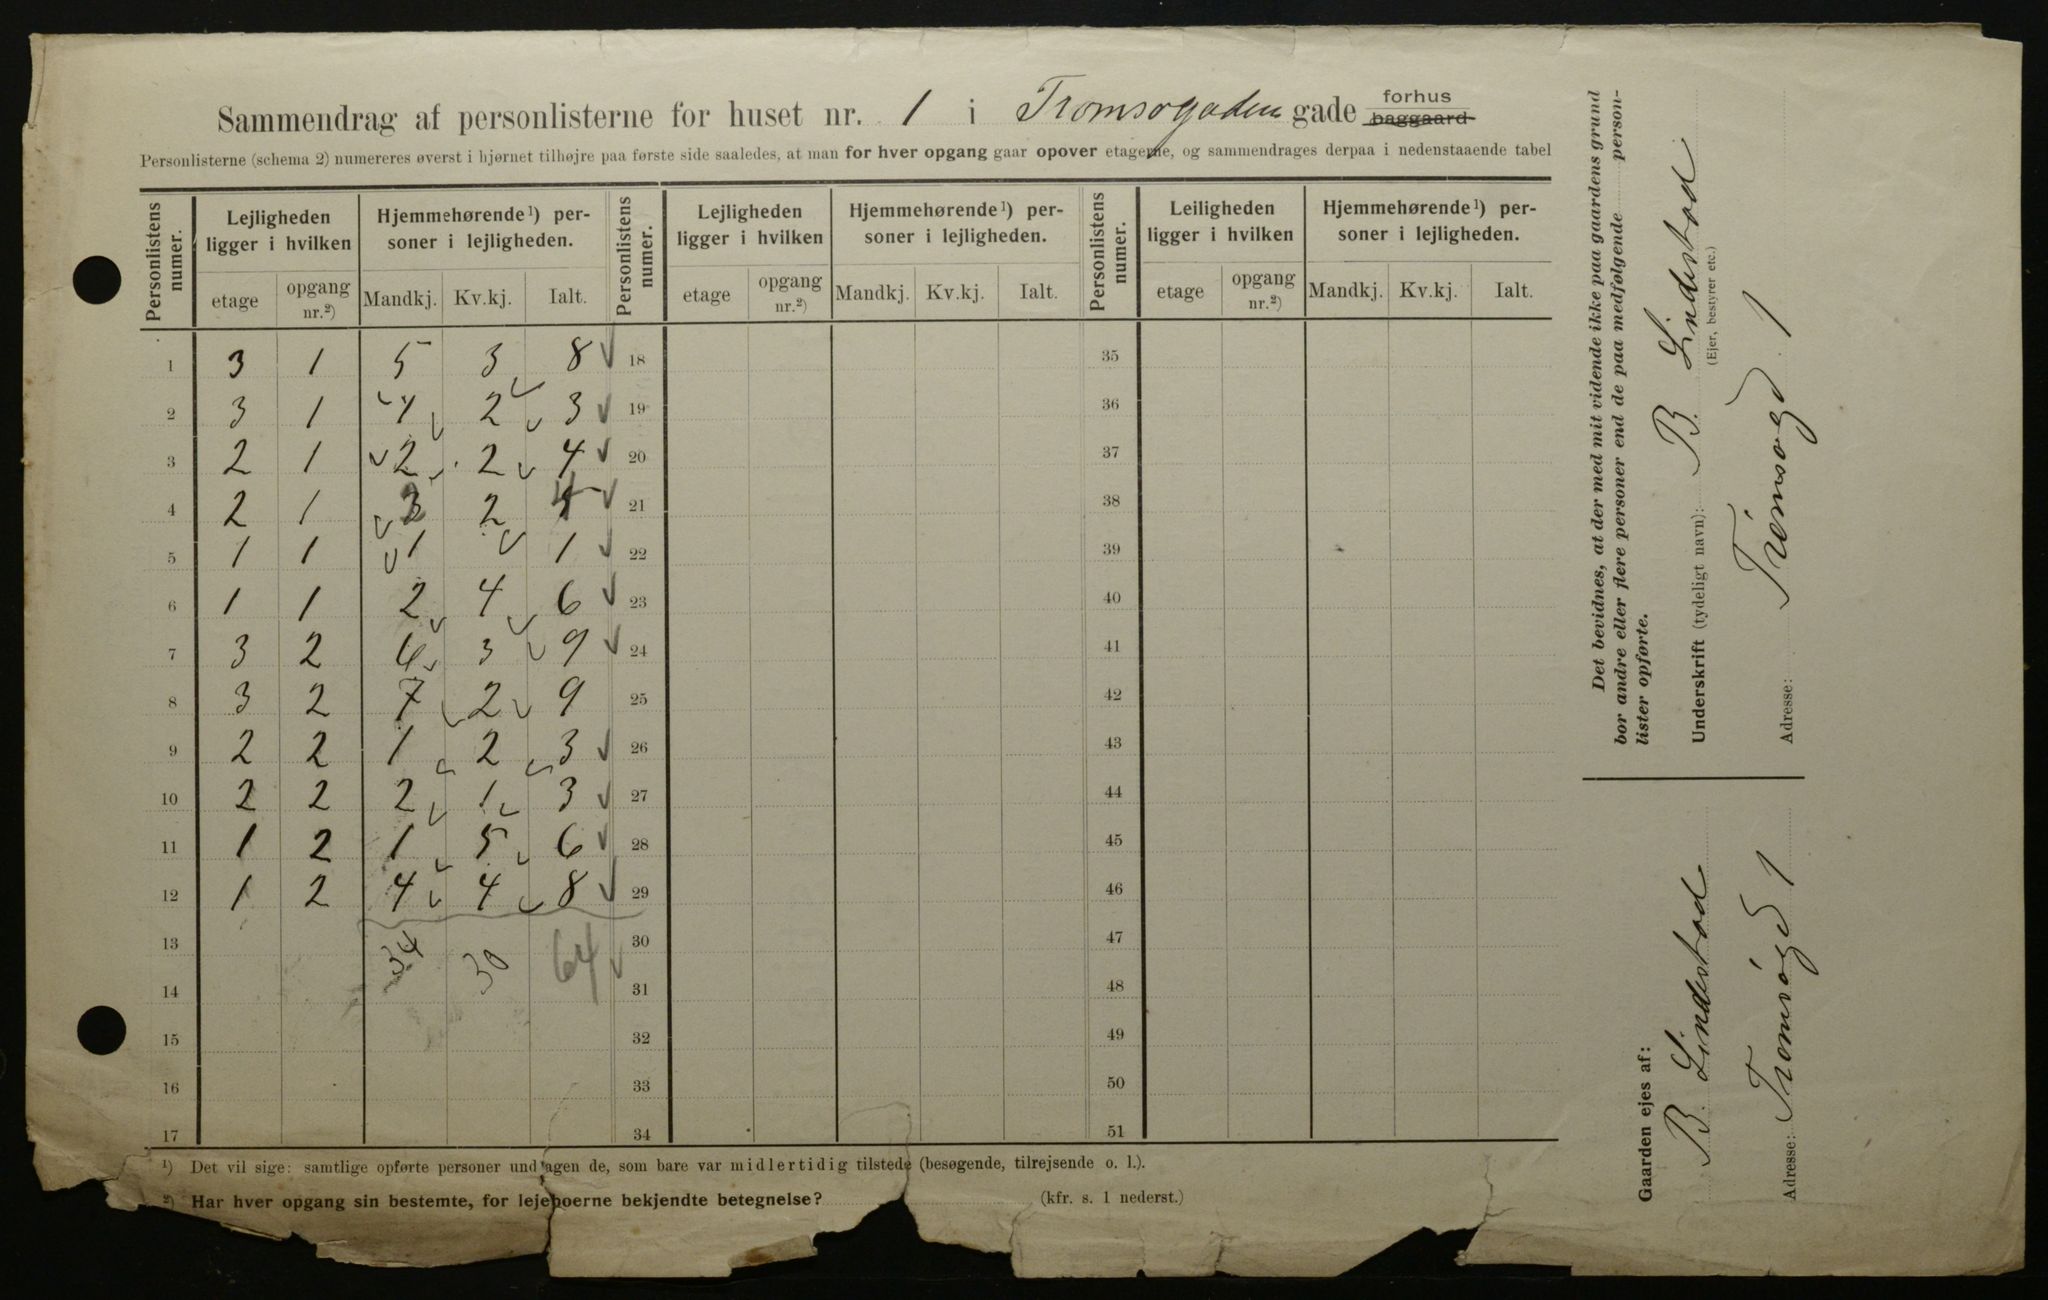 Sammendrag af personlisterne for huset nr. 1 i Tromsøgaden gade forhus baggaard
Personlisterne (schema 2) numereres øverst i hjørnet tilhøjre paa første side saaledes, at man for hver opgang gaar opover etagerne, og sammendrages derpaa i nedenstaaende tabel
Personlistens numer. Lejligheden ligger i hvilken Hjemmehørende¹) personer i lejligheden. Personlistens numer. Lejligheden ligger i hvilken Hjemmehørende¹) personer i lejligheden. Personlistens numer. Leiligheden ligger i hvilken Hjemmehørende¹) personer i lejligheden.
etage opgang nr.²) Mandkj. Kv.kj. Ialt. etage opgang nr.²) Mandkj. Kv.kj. Ialt. etage opgang nr.²) Mandkj. Kv.kj. Ialt.
1 3 1 5 3 8 18 35
2 3 1 1 2 3 19 36
3 2 1 2 2 4 20 37
4 2 1 2 2 4 21 38
5 1 1 1 1 22 39
6 1 1 2 4 6 23 40
7 3 2 6 3 9 24 41
8 3 2 7 2 9 25 42
9 2 2 1 2 3 26 43
10 2 2 2 1 3 27 44
11 1 2 1 5 6 28 45
12 1 2 4 4 8 29 46
13 34 30 64 30 47
14 31 48
15 32 49
16 33 50
17 34 51
¹) Det vil sige: samtlige opførte personer undtagen de, som bare var midlertidig tilstede (besøgende, tilrejsende o. l.).
²) Har hver opgang sin bestemte, for lejeboerne bekjendte betegnelse? (kfr. s. 1 nederst.)
Det bevidnes, at der med mit vidende ikke paa gaardens grund
bor andre eller flere personer end de paa medfølgende person-
lister opførte.
Underskrift (tydeligt navn): B. Lindstad
(Ejer, bestyrer etc.)
Adresse: Tromsøgd 1
Gaarden ejes af:
B. Lindstad
Adresse: Tromsøgd 1